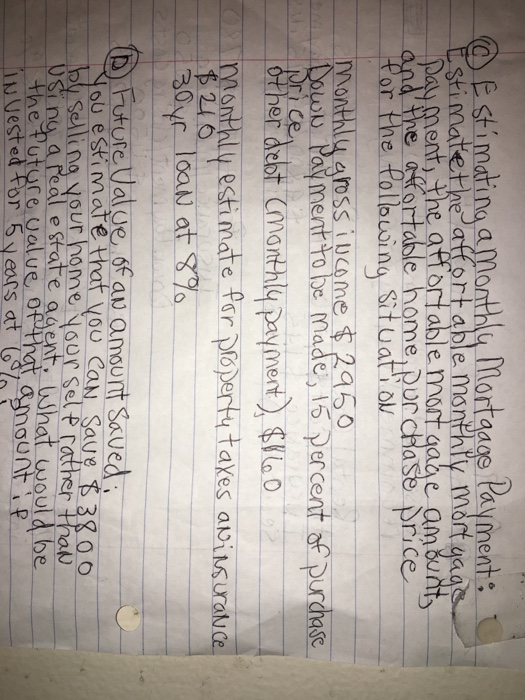 Ⓒ Estimating a Monthly Mortgage Payment:
Estimate the affordable monthly mortgage
payment, the affordable mortgage amount,
and the affortable home purchase price
for the following situation
Monthly gross income $2950
Down payment to be made, 15 percent of purchase
price
other debt (monthly payment), $160
Monthly estimate for property taxes an insurance
$210
30yr loan at 8%
Ⓓ Future Value of an amount Saved:
You estimate that you can save $3800
by selling your home yourself rather than
using a real estate agent. What would be
the future value of that amount if
invested for 5 years at 6%?